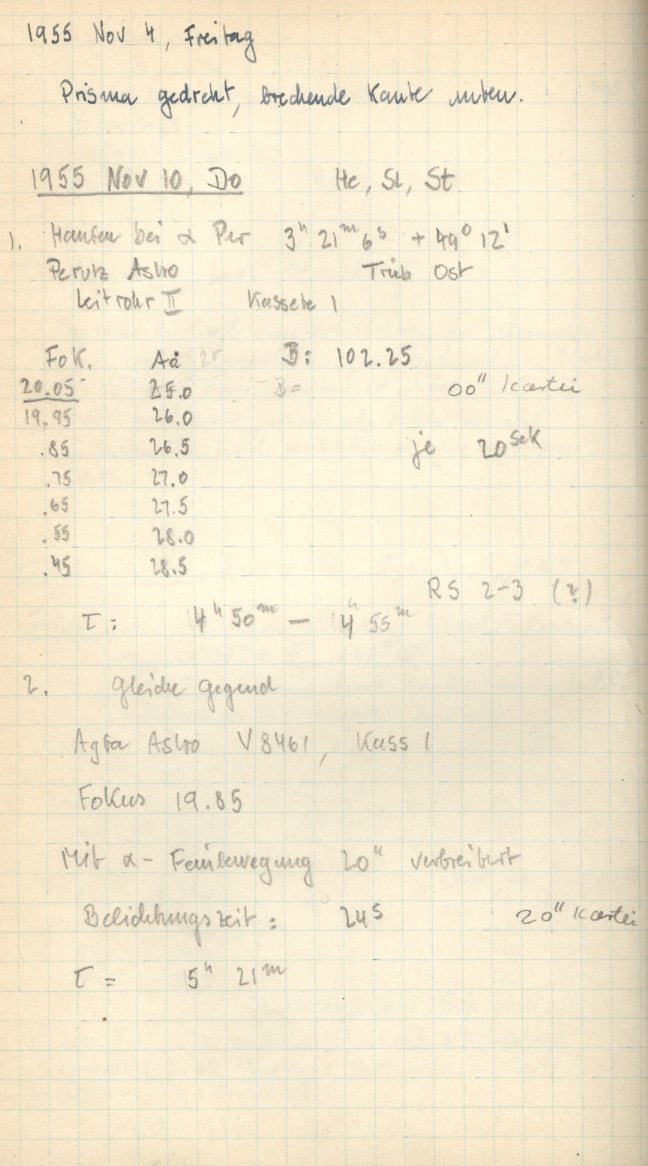 1955 Nov 4, Freitag
Prisma gedreht, brechende Kante unten.
1955 Nov 10, Do He, Sl, St
1. Haufen bei α Per 3ʰ 21ᵐ 6ˢ + 49⁰ 12'
Perutz Astro Trüb Ost
Leitrohr II Kassete 1
Fok. B: 102.25
20.05 25.0 B=
00" Kartei
19.95 26.0
.85 26.5 je 20 Sek
.75 27.0
.65 27.5
.55 28.0
.45 28.5
RS 2-3 (?)
τ: 4ʰ 50ᵐ — 4ʰ 55ᵐ
2. Gleiche Gegend
Agfa Astro V8461, Kass 1
Fokus 19.85
Mit α- Feinbewegung 20" verbreitert
Belichtungszeit: 24ˢ 20" Kartei
τ = 5ʰ 21ᵐ